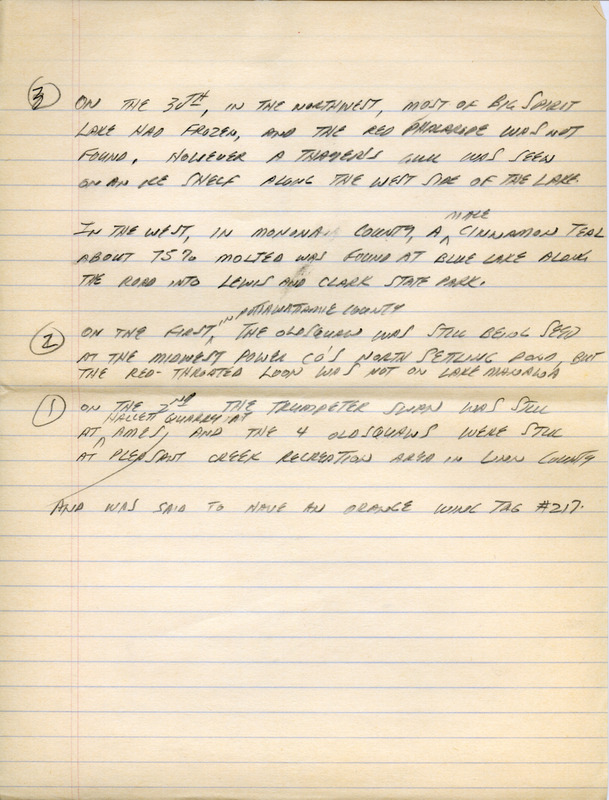 ③ ON THE 30TH, IN THE NORTHWEST, MOST OF BIG SPIRIT
LAKE HAD FROZEN, AND THE RED PHALAROPE WAS NOT
FOUND. HOWEVER A THAYER'S GULL WAS SEEN
ON AN ICE SHELF ALONG THE WEST SIDE OF THE LAKE.
IN THE WEST, IN MONONA COUNTY, A ^ MALE CINNAMON TEAL
ABOUT 75% MOLTED WAS FOUND AT BLUE LAKE ALONG
THE ROAD INTO LEWIS AND CLARK STATE PARK.
② ON THE FIRST ^ IN POTTAWATTAMIE COUNTY THE OLDSQUAW WAS STILL BEING SEEN
AT THE MIDWEST POWER CO'S NORTH SETTLING POND, BUT
THE RED-THROATED LOON WAS NOT ON LAKE MANAWA
① ON THE 2ND THE TRUMPETER SWAN WAS STILL
AT ^ HALLETT QUARRY AT AMES, AND THE 4 OLDSQUAWS WERE STILL
AT PLEASANT CREEK RECREATION AREA IN LINN COUNTY
AND WAS SAID TO HAVE AN ORANGE WING TAG #217.